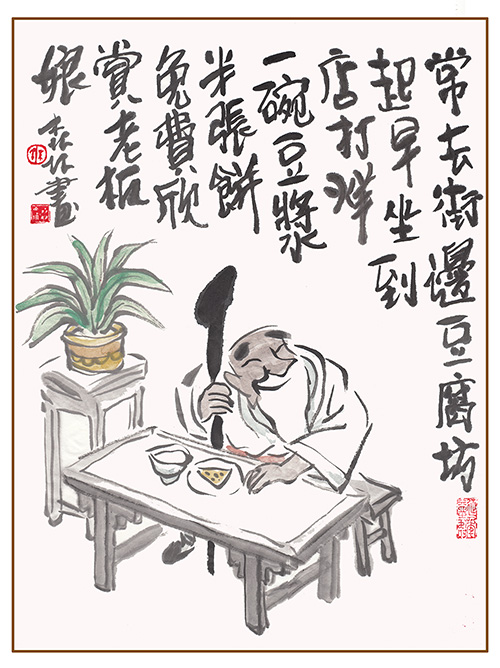 常去街邊豆腐坊
起早坐到
店打烊
一碗豆漿
半張餅
免費欣
賞老板
娘
森林畫